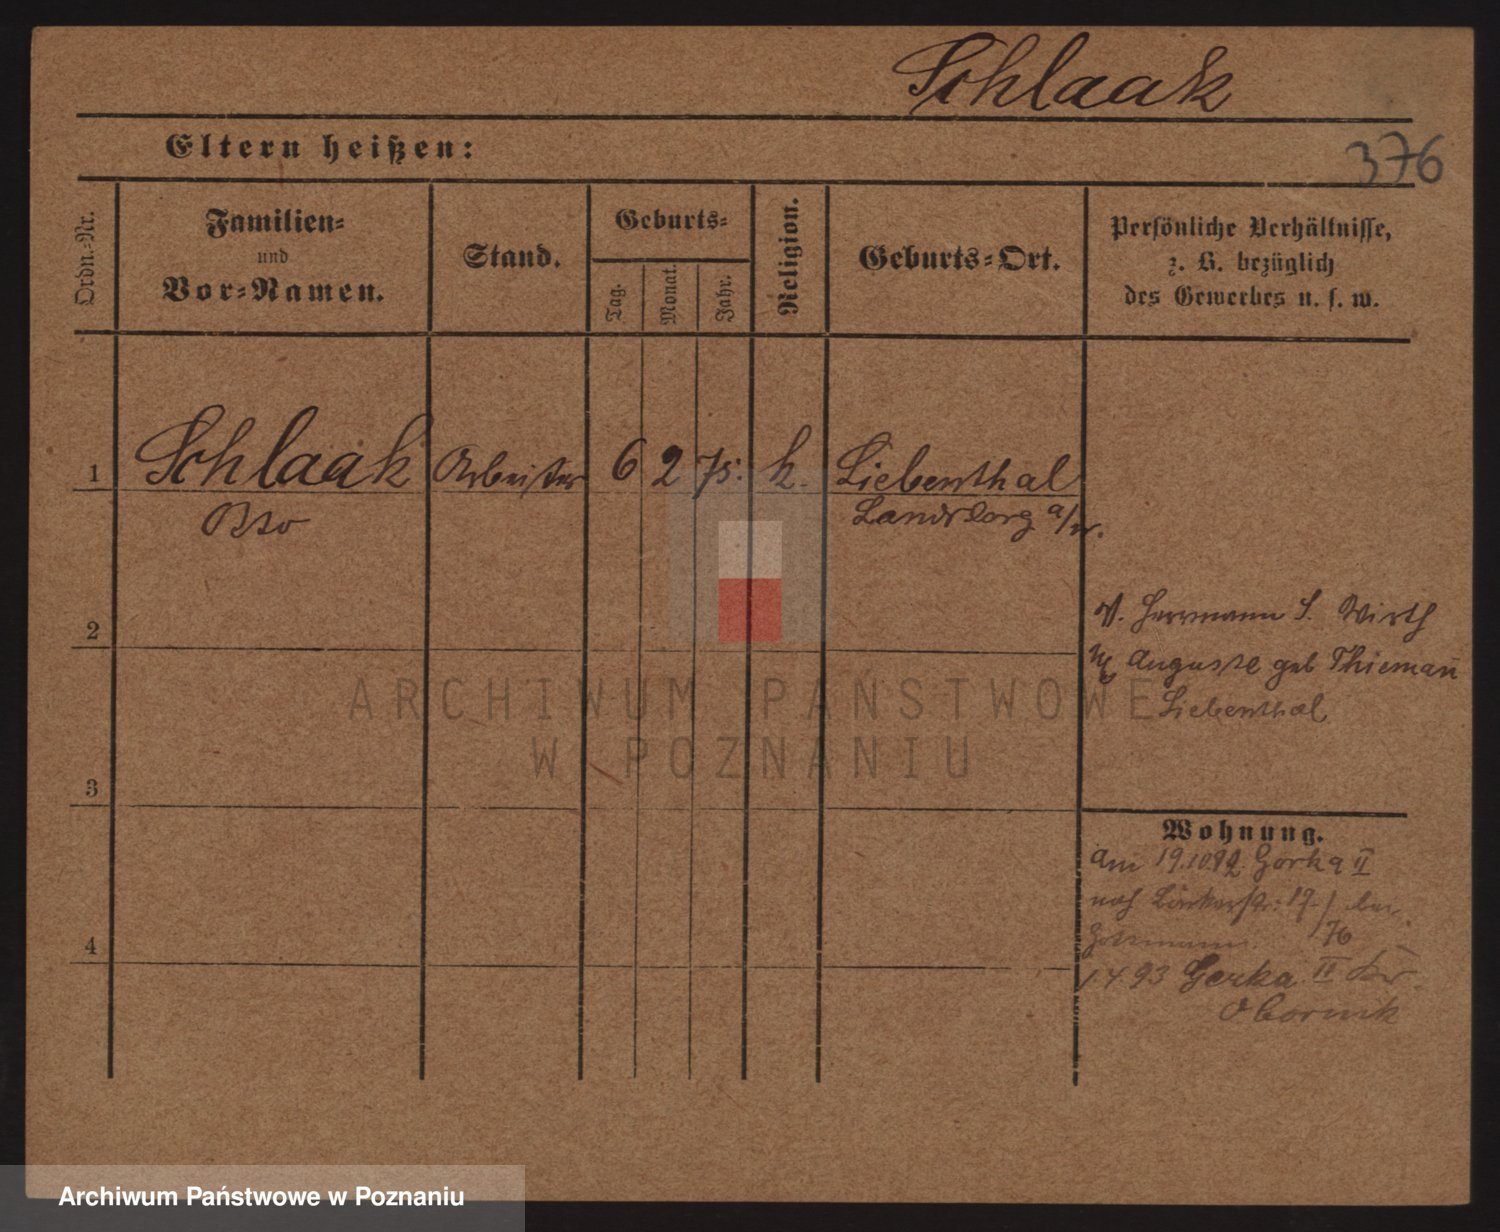 Schlaak
Eltern heißen:
376
Ordn.-Nr.
Familien-
und
Vor-Namen.
Stand.
Geburts-
Tag.
Monat.
Jahr.
Religion.
Geburts-Ort.
Persönliche Verhältnisse,
z. B. bezüglich
des Gewerbes u. s. w.
1 Schlaak Arbeiter 6 2 75. k. Liebenthal
Otto Landsberg a/w.
2
V. Herrmann S. Wirth
Auguste geb Thiemann
Liebenthal
3
4
Wohnung.
am 19.10 92 Gorka II
nach 19/ bei
76
1.4.93 Gorka II Kr.
Obornik
ARCHIWUM PAŃSTWOWE
W POZNANIU
Archiwum Państwowe w Poznaniu